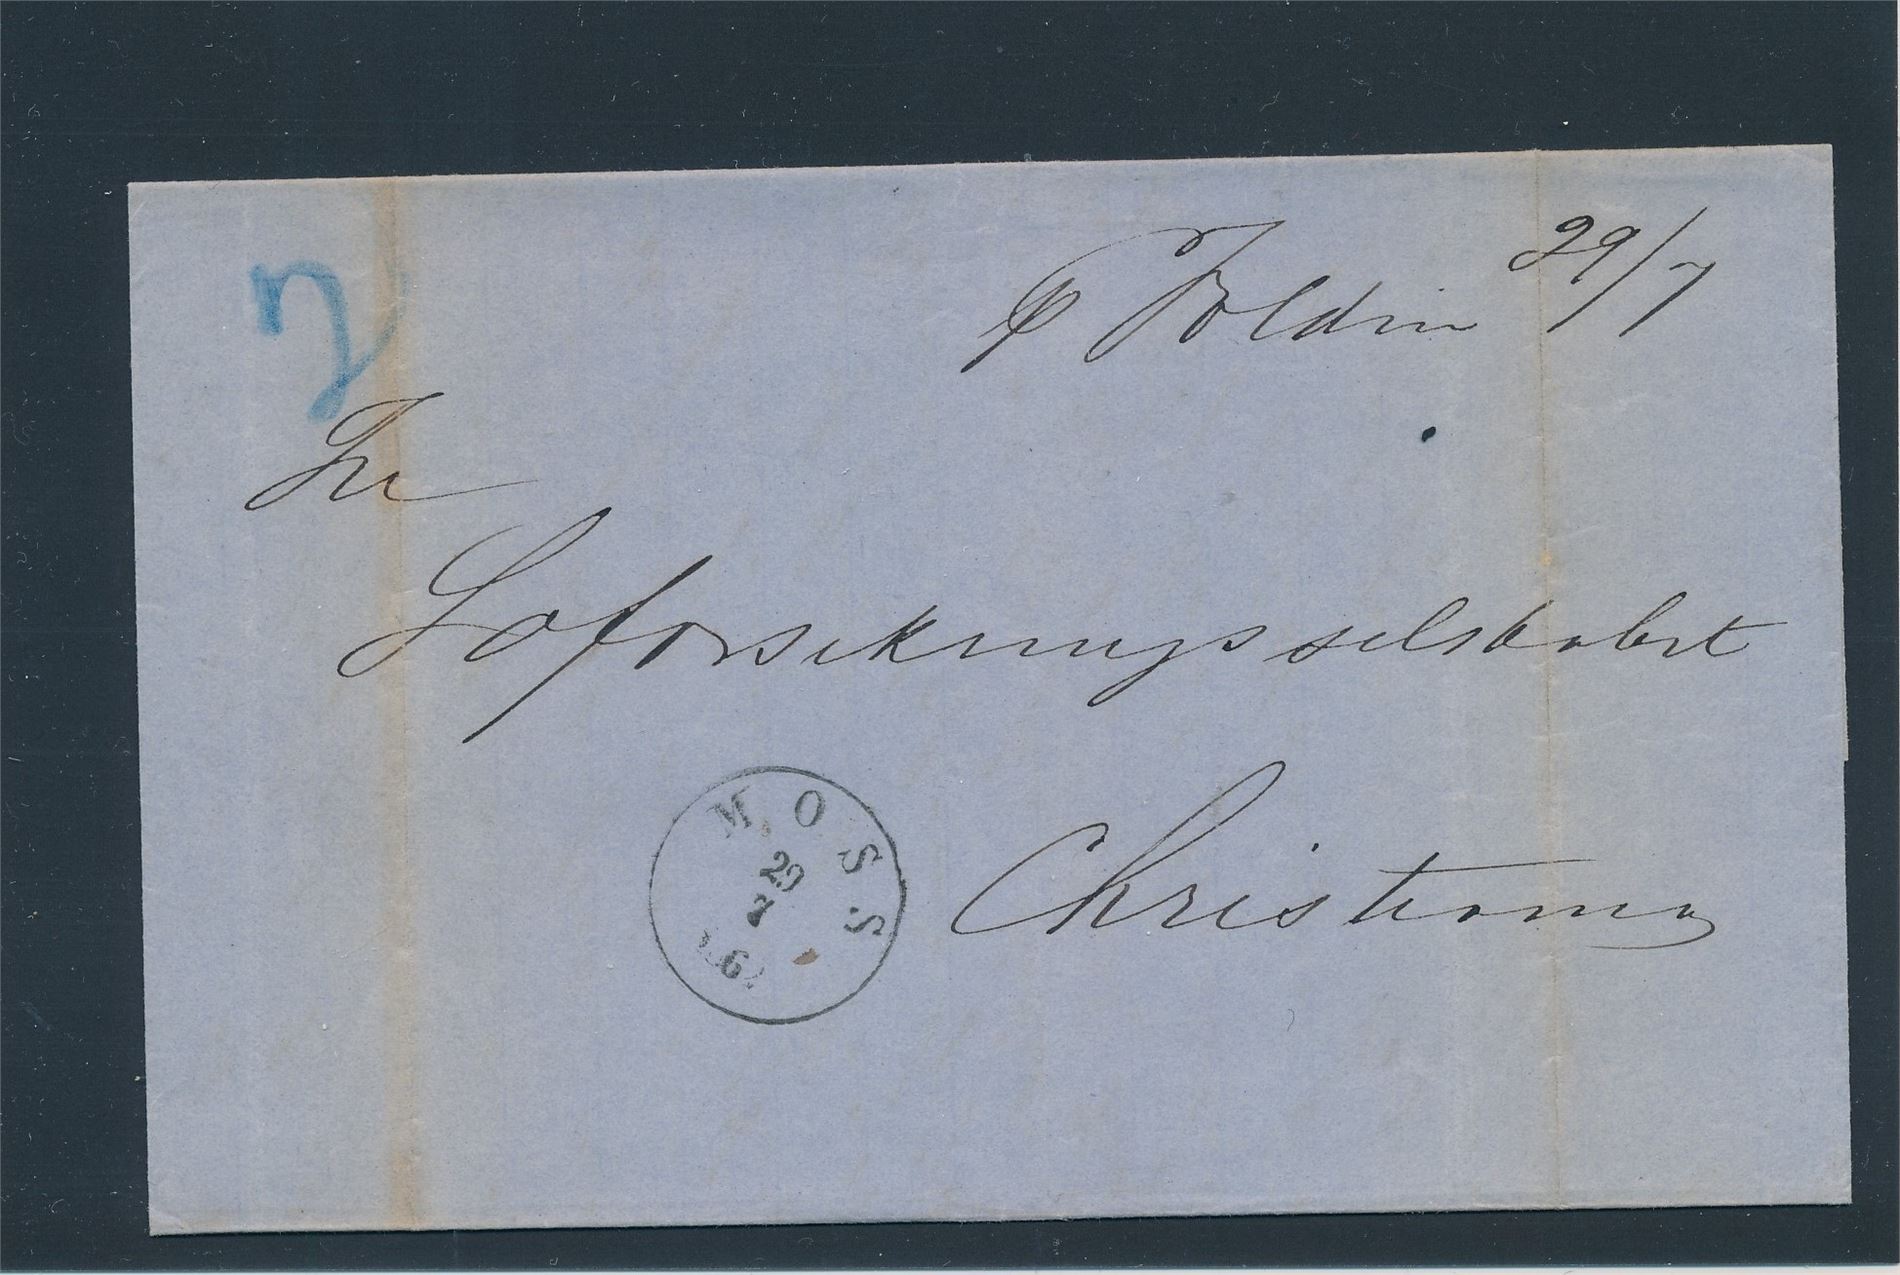 2
p Foldin 29/7
Til
Søforsikringsselskabet
Christiania
MOSS
29
7